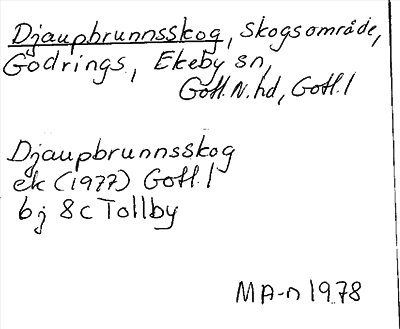 Djaupbrunnsskog, skogsområde,
Godrings, Ekeby sn,
Gotl. N. hd, Gotl. l
Djaupbrunnsskog
ek (1977) Gotl. l
bj 8c Tollby
MA-n 1978